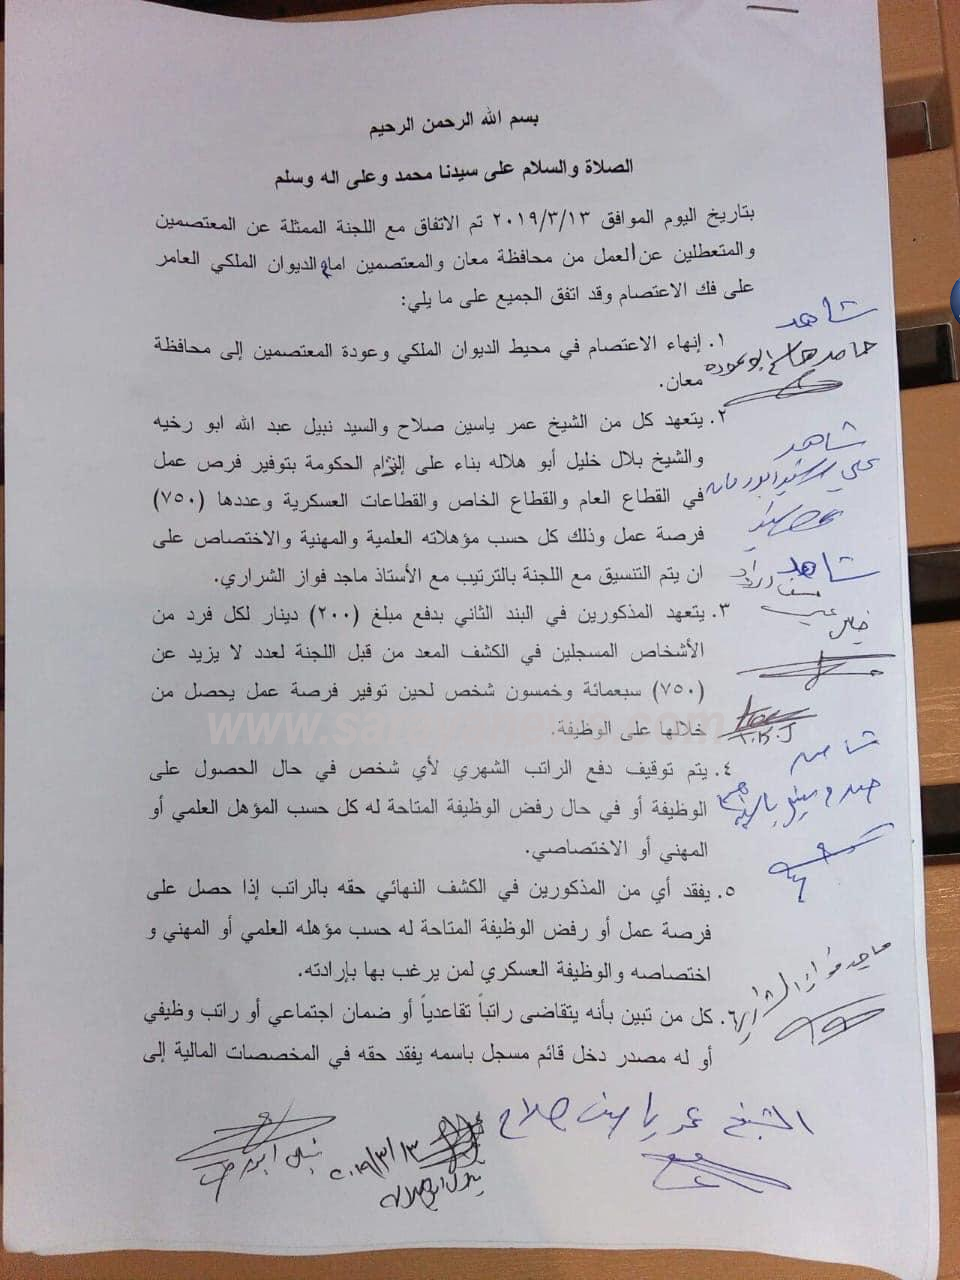 بسم الله الرحمن الرحيم
الصلاة والسلام على سيدنا محمد وعلى اله وسلم
بتاريخ اليوم الموافق ٢٠١٩/٣/١٣ تم الاتفاق مع اللجنة الممثلة عن المعتصمين
والمتعطلين عن العمل من محافظة معان والمعتصمين امام الديوان الملكي العامر
على فك الاعتصام وقد اتفق الجميع على ما يلي:
١. إنهاء الاعتصام في محيط الديوان الملكي وعودة المعتصمين إلى محافظة
معان.
٢. يتعهد كل من الشيخ عمر ياسين صلاح والسيد نبيل عبد الله ابو رخيه
والشيخ بلال خليل أبو هلاله بناء على إلتزام الحكومة بتوفير فرص عمل
في القطاع العام والقطاع الخاص والقطاعات العسكرية وعددها (٧٥٠)
فرصة عمل وذلك كل حسب مؤهلاته العلمية والمهنية والاختصاص على
ان يتم التنسيق مع اللجنة بالترتيب مع الأستاذ ماجد فواز الشراري.
٣. يتعهد المذكورين في البند الثاني بدفع مبلغ (٢٠٠) دينار لكل فرد من
الأشخاص المسجلين في الكشف المعد من قبل اللجنة لعدد لا يزيد عن
(٧٥٠) سبعمائة وخمسون شخص لحين توفير فرصة عمل يحصل من
خلالها على الوظيفة.
٤. يتم توقيف دفع الراتب الشهري لأي شخص في حال الحصول على
الوظيفة أو في حال رفض الوظيفة المتاحة له كل حسب المؤهل العلمي أو
المهني أو الاختصاصي.
٥. يفقد أي من المذكورين في الكشف النهائي حقه بالراتب إذا حصل على
فرصة عمل أو رفض الوظيفة المتاحة له حسب مؤهله العلمي أو المهني و
اختصاصه والوظيفة العسكري لمن يرغب بها بإرادته.
٦. كل من تبين بأنه يتقاضى راتباً تقاعدياً أو ضمان اجتماعي أو راتب وظيفي
أو له مصدر دخل قائم مسجل باسمه يفقد حقه في المخصصات المالية إلى
شاهد
شاهد
شاهد
شاهد
ماجد فواز الشراري
الشيخ عمر ياسين صلاح
٢٠١٩/٣/١٣
بلال ابو هلاله